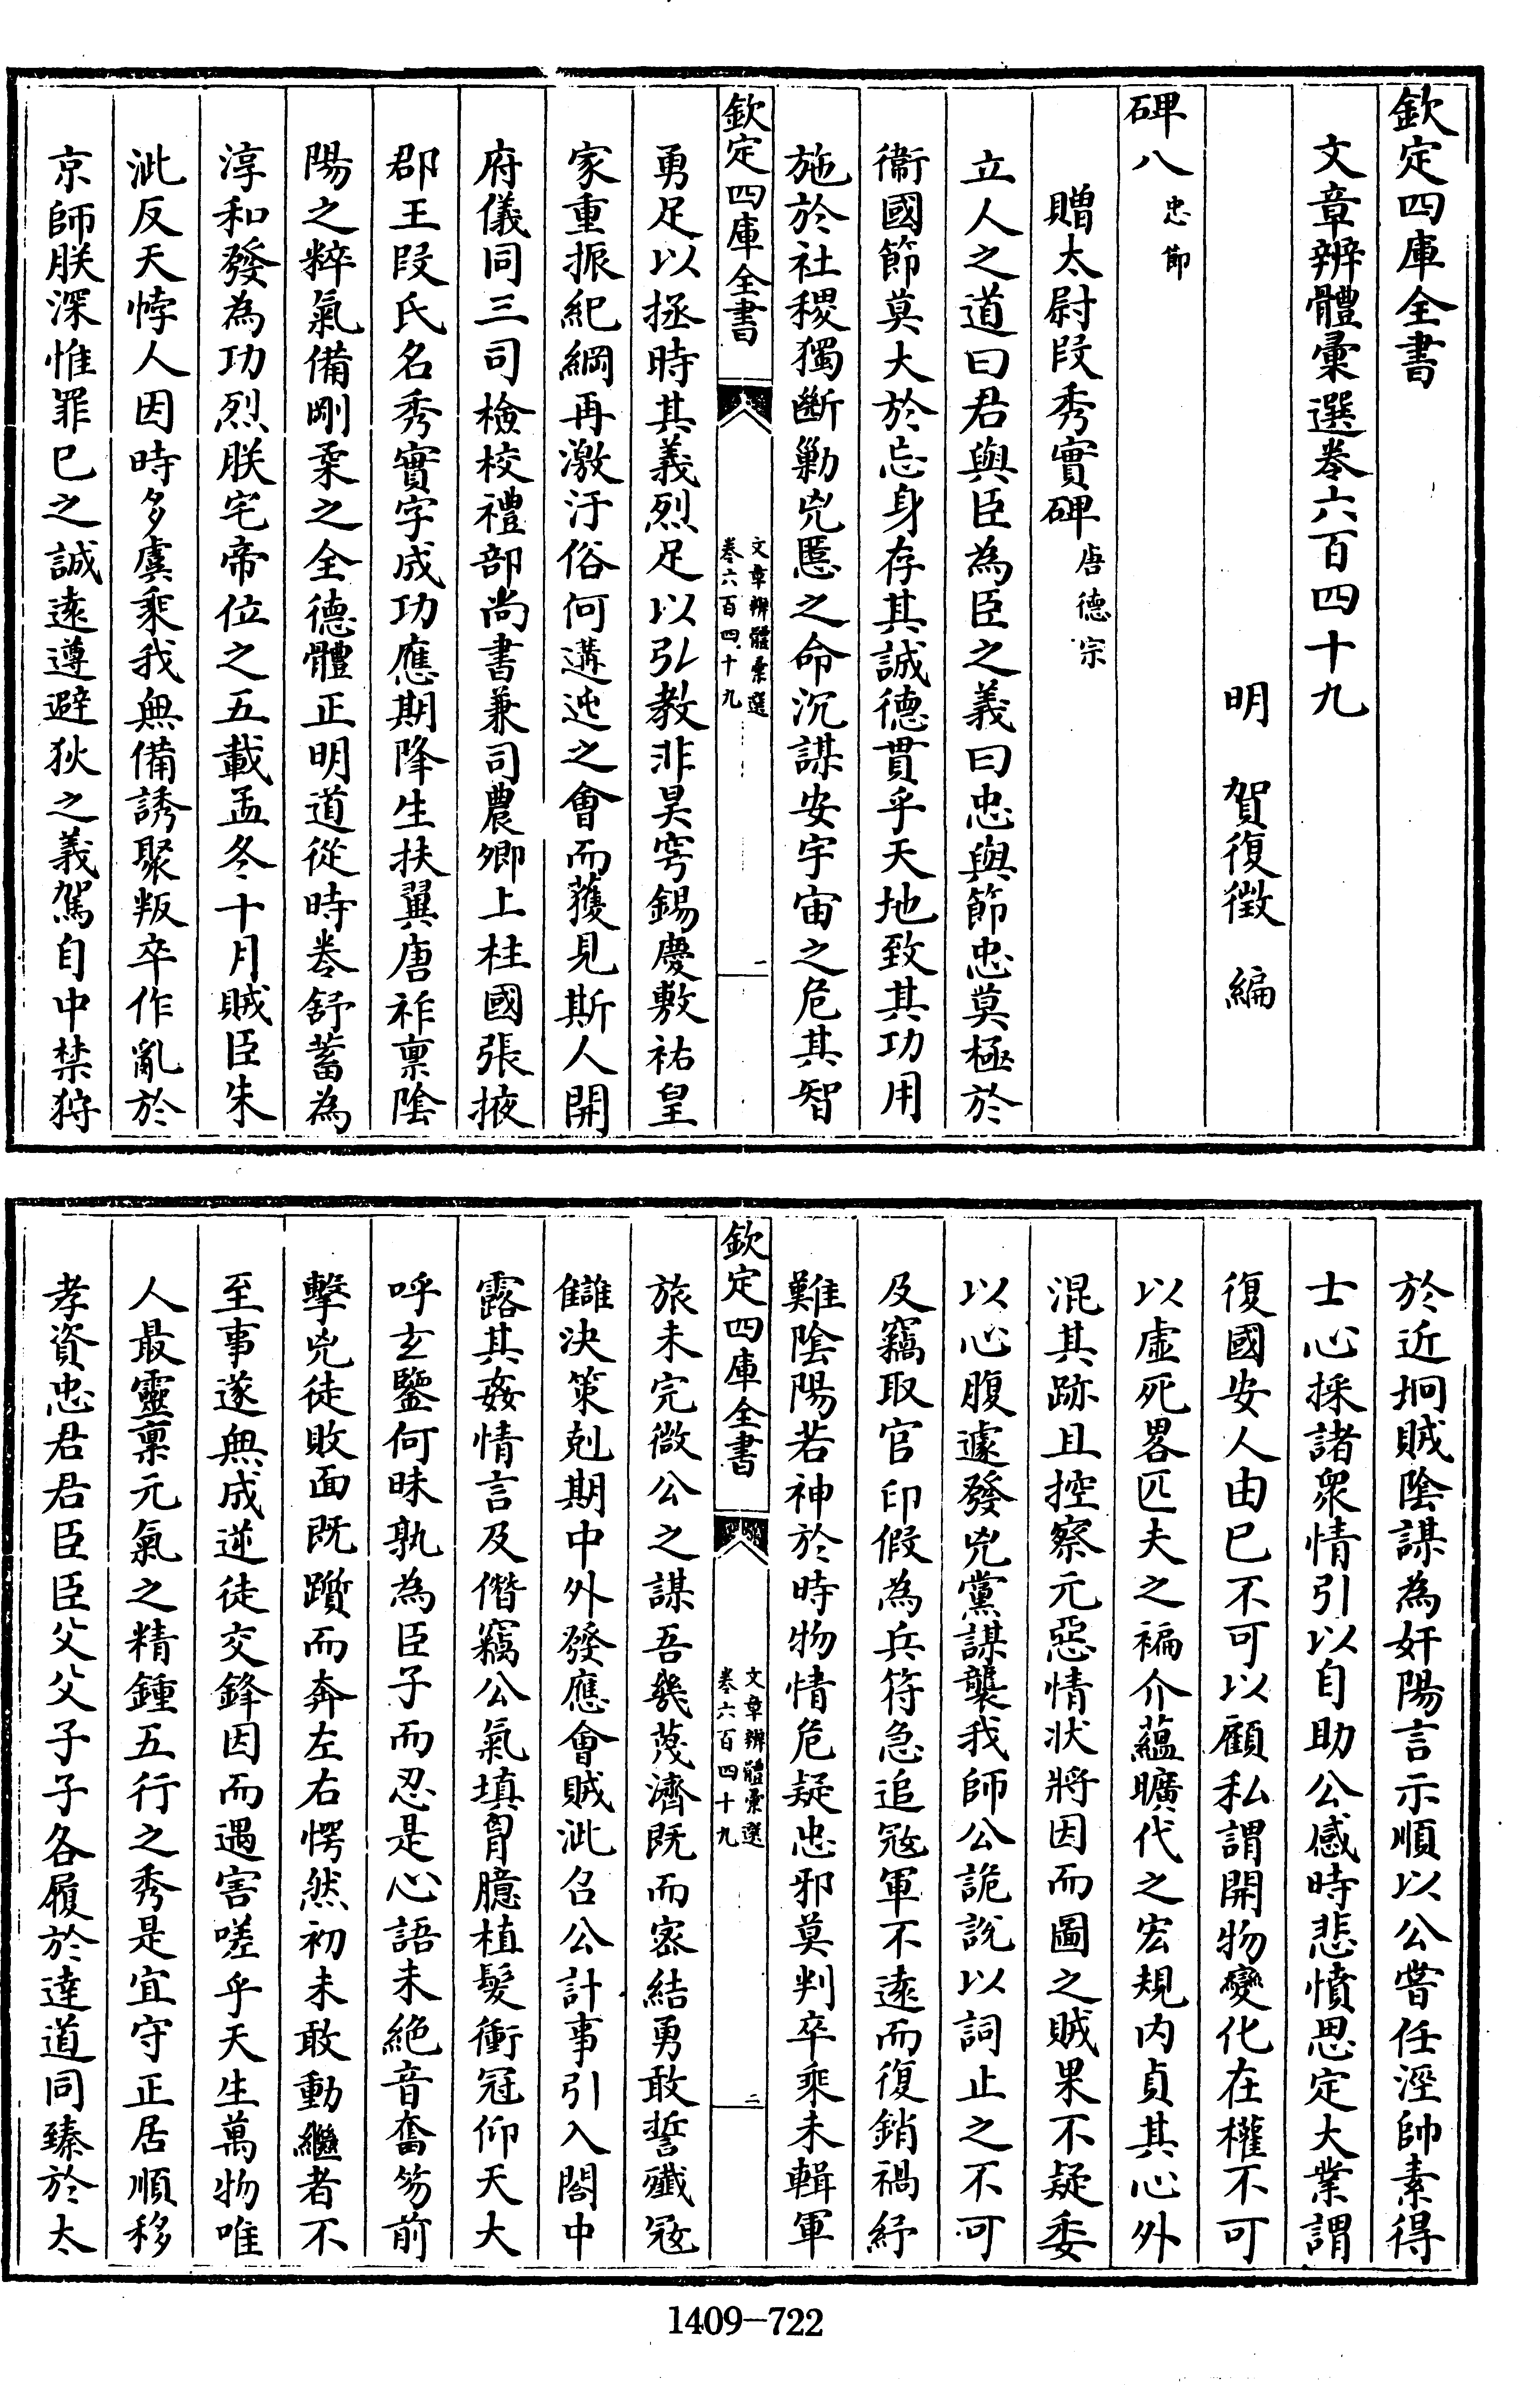 欽定四庫全書
文章辨體彙選卷六百四十九
明　賀復徵　編
碑八忠節
贈太尉段秀實碑唐德宗
立人之道曰君與臣為臣之義曰忠與節忠莫極於
衞國節莫大於忘身存其誠德貫乎天地致其功用
施於社稷獨斷勦兇慝之命沉謀安宇宙之危其智
欽定四庫全書
文章辨體彙選
卷六百四十九
一
勇足以拯時其義烈足以引教非昊穹錫慶敷祐皇
家重振紀綱再激汙俗何遘迍之會而獲見斯人開
府儀同三司檢校禮部尚書兼司農卿上柱國張掖
郡王段氏名秀實字成功應期降生扶翼唐祚禀陰
陽之粹氣備剛柔之全德體正明道從時卷舒蓄為
淳和發為功烈朕宅帝位之五載孟冬十月賊臣朱
泚反天悖人因時多虞乘我無備誘聚叛卒作亂於
京師朕深惟罪已之誠遠遵避狄之義駕自中禁狩
於近坰賊陰謀為奸陽言示順以公嘗任涇帥素得
士心採諸衆情引以自助公感時悲憤思定大業謂
復國安人由已不可以顧私謂開物變化在權不可
以虛死畧匹夫之褊介蘊曠代之宏規内貞其心外
混其跡且控察元惡情狀將因而圖之賊果不疑委
以心腹遽發兇黨謀襲我師公詭說以詞止之不可
及竊取官印假為兵符急追宼軍不遠而復銷禍紓
難陰陽若神於時物情危疑忠邪莫判卒乘未輯軍
欽定四庫全書
文章辨體彙選
卷六百四十九
二
旅未完微公之謀吾幾蔑濟既而密結勇敢誓殲宼
讎決策剋期中外發應會賊泚召公計事引入閤中
露其姦情言及僭竊公氣填胷臆植髮衝冠仰天大
呼玄鑒何昧孰為臣子而忍是心語未絶音奮笏前
擊兇徒敗面既躓而奔左右愕然初未敢動繼者不
至事遂無成逆徒交鋒因而遇害嗟乎天生萬物唯
人最靈禀元氣之精鍾五行之秀是宜守正居順移
孝資忠君君臣臣父父子子各履於達道同臻於太
1409-722